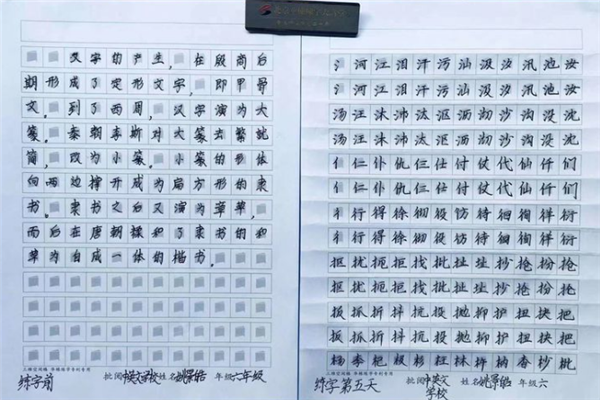 汉字的产生，在殷商后
期形成了定形文字，即甲骨
文，到了西周，汉字演为大
篆，秦朝李斯对大篆去繁就
简，改为小篆，小篆的形体
向两边撑开成为扁方形的隶
书。隶书之后又演为章草，
而后在唐朝揉和了隶书的和
草为自成一体的楷书。
练字前
批阅
姓名
年级六年级
氵河江泪汗污汕汲汐汛池汝
氵河江泪汗污汕汲汐汛池汝
汤汪沐沛汰沤洒沏沙沟没沈
汤汪沐沛汰沤洒沏沙沟没沈
亻仁仆仇仨仕付仗代仙仟们
亻仁仆仇仨仕付仗代仙仟们
彳行得徐彻役彷待徊徇徉衍
彳行得徐彻役彷待徊徇徉衍
抠扰扼抠找批扯址抄抢扮抢
抠扰扼抠找批扯址抄抢扮抢
扳抓折抖抗投抛抑护扭抉把
扳抓折抖抗投抛抑护扭抉把
练字第五天
批阅
中英文
学校
姓名
年级六